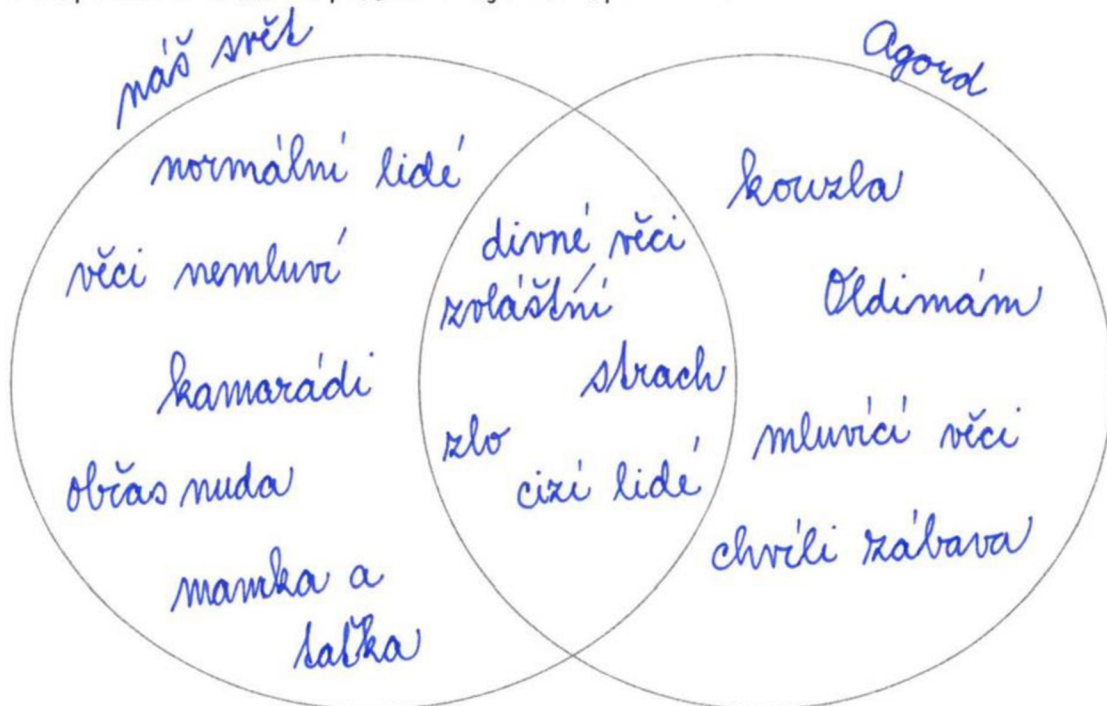 náš svět
Agord
normální lidé
věci nemluví
kamarádi
občas nuda
mamka a
taťka
divné věci
zvláštní
strach
zlo
cizí lidé
kouzla
Oldimám
mluvící věci
chvíli zábava